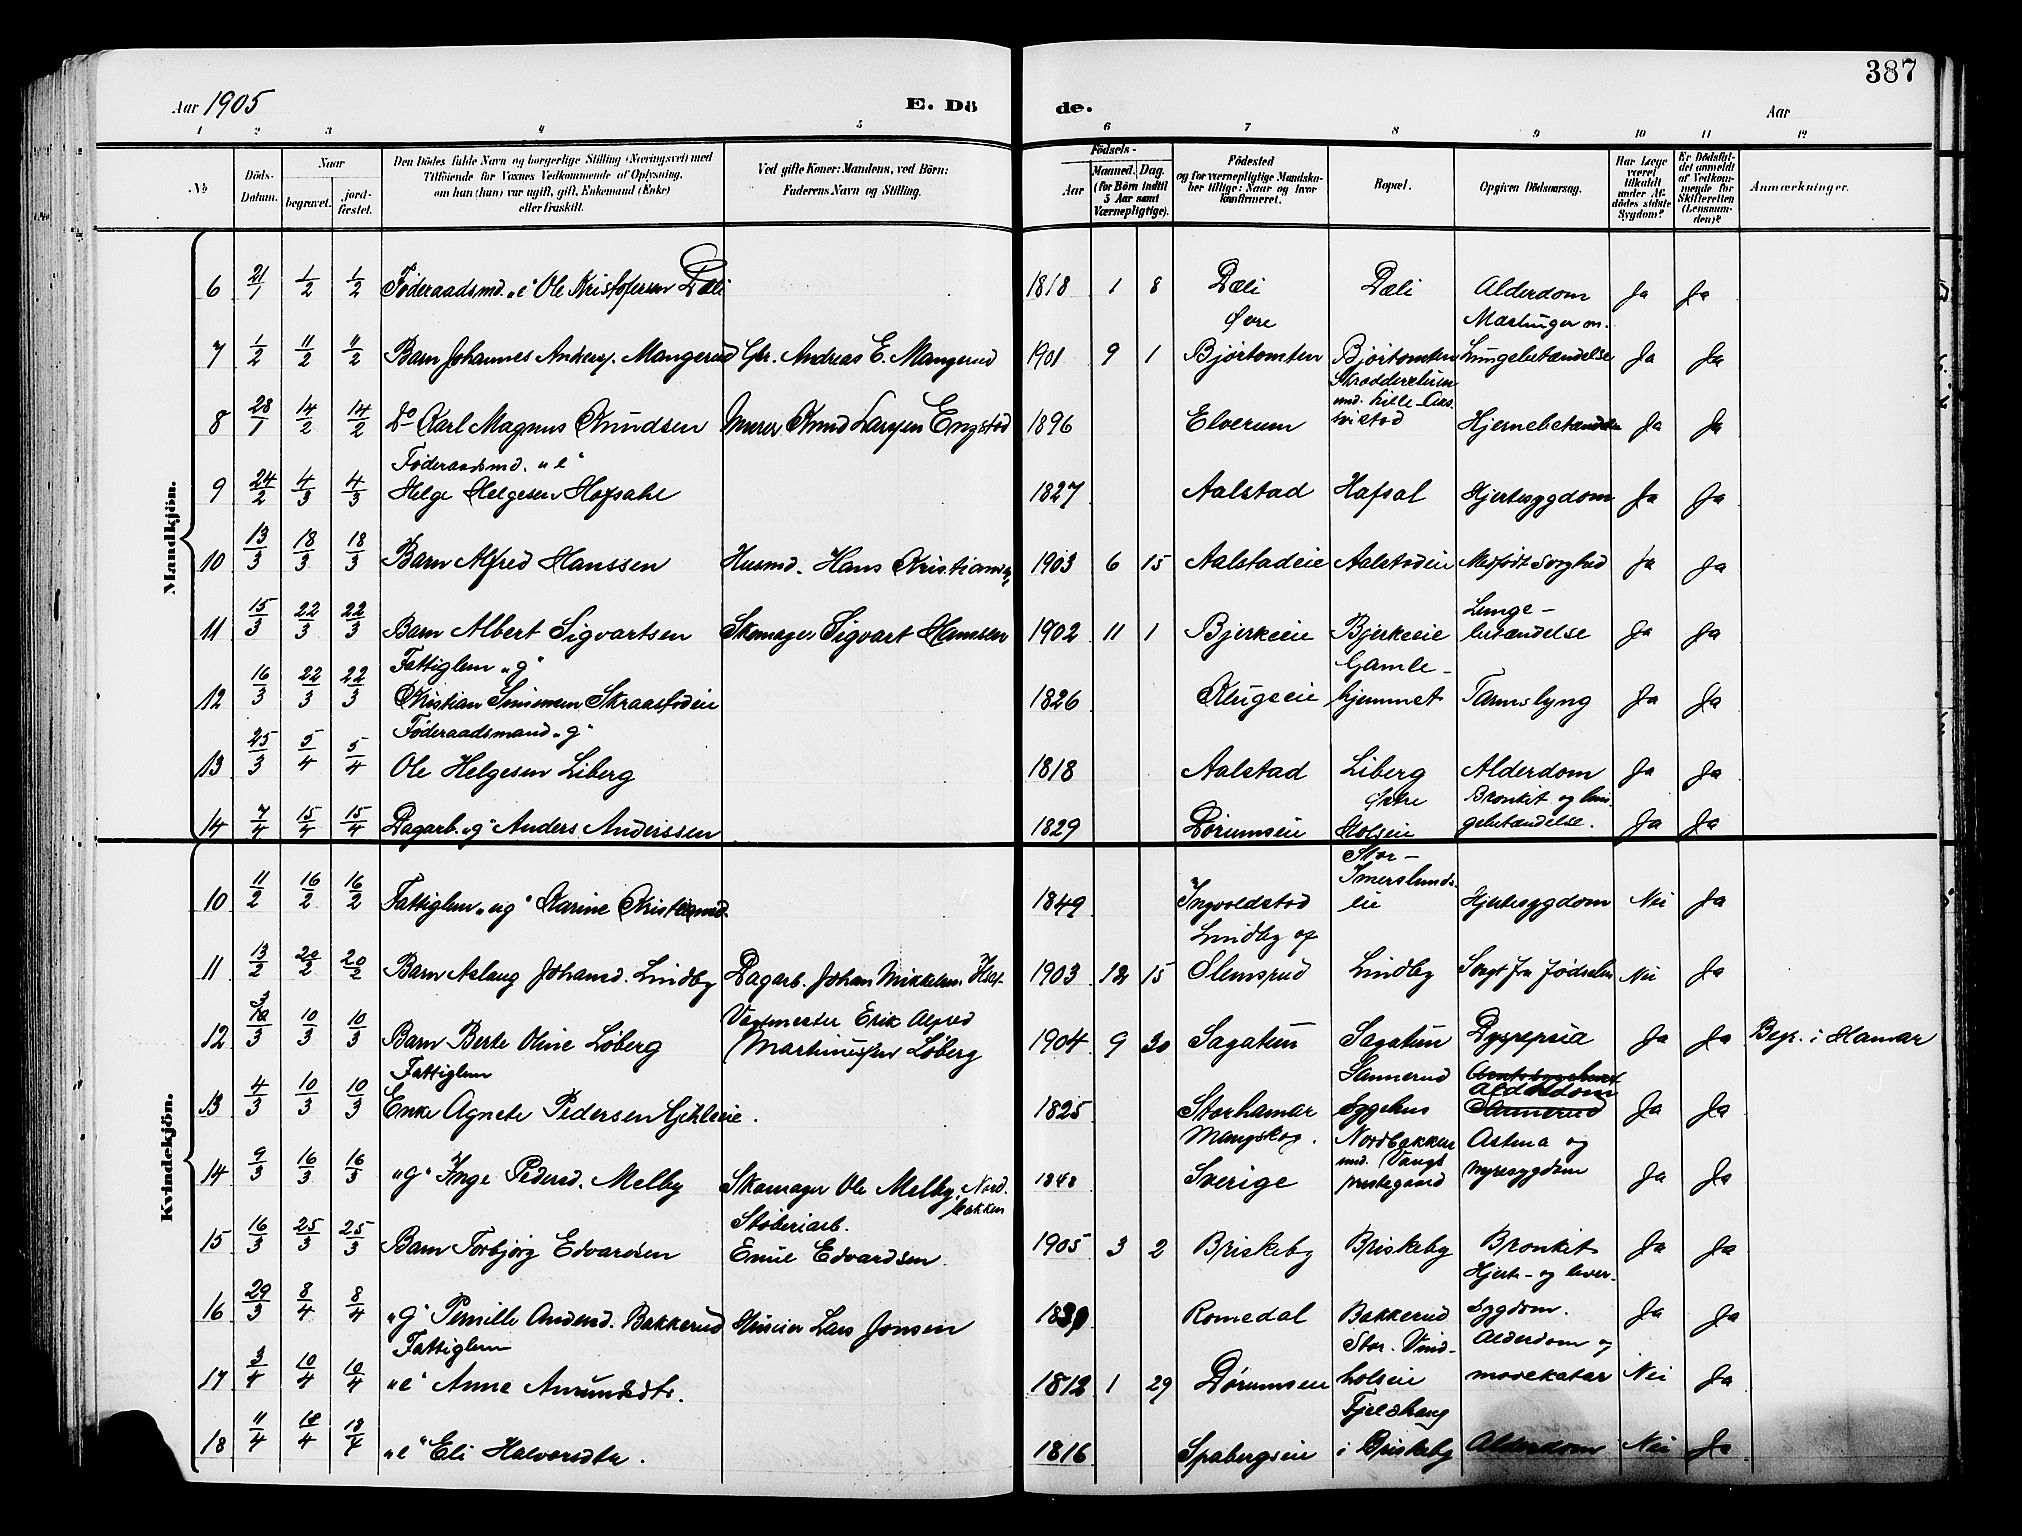 387
Aar 1905
E. Dö de.
Aar
1 2 3 4 5 6 7 8 9 10 11 12
No
Döds-Datum.
Naar
begravet.
jord-fæstet.
Den Dödes fulde Navn og borgerlige Stilling (Næringsvei) med
Tilföiende for Voxnes Vedkommende af Oplysning,
om han (hun) var ugift, gift, Enkemand (Enke)
eller fraskilt.
Ved gifte Koner: Mandens, ved Börn:
Faderens Navn og Stilling.
Födsels-
Aar
Maaned. Dag.
(for Börn indtil
5 Aar samt
Værnepligtige).
Födested
og for værnepligtige Mandska-
ber tillige: Naar og hvor
konfirmeret.
Bopæl.
Opgiven Dödsaarsag.
Har Læge
været
tilkaldt
under Af-
dödes sidste
Sygdom?
Er Dödsfal-
det anmeldt
af Vedkom-
mende for
Skifteretten
(Lensman-
den)?
Anmærkninger.
Mandkjön.
6 21/1 1/2 1/2 Føderaadsmd. "e" Ole Kristofersen Dæli 1818 1 8 Dæli Dæli Alderdom Ja Ja
7 1/2 11/2 11/2 Barn Johannes Andreas. Mangerud Gbr. Andreas E. Mangerud 1901 9 1 Øvre Bjørtomten Bjørtomten Mæslinger og Lungebetændelse Ja Ja
8 28/1 14/2 14/2 Do Karl Magnus Knudsen Murer Knud Larssen Engstad 1896 Elverum Hjernebetændelse Ja Ja
9 24/2 4/3 4/3 Føderaadsmd. "e"
Helge Helgesen Hofsahl 1827 Aalstad Hafsal Hjertesygdom Ja Ja
10 13/3 18/3 18/3 Barn Alfred Hanssen Husmd. Hans Kristians. 1903 6 15 Aalstadeie Aalstadeie Medfødt Svaghed Ja Ja
11 15/3 22/3 22/3 Barn Albert Sigvartsen Skomager Sigvart Hansen 1902 11 1 Bjerkeeie Bjerkeeie Lunge-
betændelse Ja Ja
12 16/3 22/3 22/3 Fattiglem "g"
Kristian Simensen Skraastadeie 1826 Klugseie Gamle-
hjemmet Tarmslyng Ja Ja
13 25/3 5/4 5/4 Føderaadsmand "g"
Ole Helgesen Liberg 1818 Aalstad Liberg Alderdom Ja Ja
14 7/4 15/4 15/4 Dagarb. "g" Anders Anderssen 1829 Dørumseie Østre
Holseie Bronkit og lun-
gebetændelse. Ja Ja
Kvindekjön.
10 11/2 16/2 16/2 Fattiglem "ug" Karine Kristiansd. 1849 Ingvoldstad Stor-
Imerslunds-
eie Hjertesygdom Nei Ja
11 13/2 20/2 20/2 Barn Aslaug Johansd. Lindby Dagarb. Johan Mikkelsen 1903 12 15 Lindby af
Slemsrud Lindby Svagt fra Fødselen Nei Ja
12 10/3 10/3 Barn Berte Oline Løberg Vagtmester Erik Alfred
Martinussen Løberg 1904 9 30 Sagatun Sagatun Dyspepsia Ja Ja Begr. i Hamar
13 4/3 10/3 10/3 Fattiglem
Enke Agnete Pedersen Gihleeie. 1825 Storhamar Sannerud
Sygehus Alderdom Sannerud Ja Ja
14 9/3 16/3 16/3 "g" Inge Pedersd. Melby Skomager Ole Melby, Nord-
bakken 1848 Mangskog.
Sverige Nordbakken
und. Vangs
prestegaard Astma og
nyresygdom Ja Ja
15 16/3 25/3 25/3 Barn Torbjørg Edvardsen Støberiarb.
Emil Edvardsen. 1905 3 2 Briskeby Briskeby Bronkit Ja Ja
16 29/3 8/4 8/4 "g" Pernille Andersd. Bakkerud Lars Jonsen 1839 Romedal Bakkerud Hjerte- og lever-
sygdom. Ja Ja
17 3/4 10/4 10/4 Fattiglem
"e" Anne Amundsdtr. 1812 1 29 Dørumseie Stor. Vind-
holseie Alderdom og
mavekatar Nei Ja
18 11/4 18/4 18/4 "e" Eli Halvorsdtr. 1816 Spabergseie Fjeldhaug
i Briskeby Alderdom Nei Ja